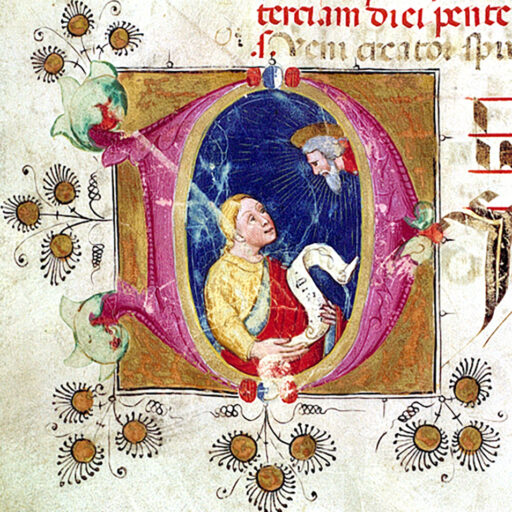 terciam diei pente
s. Veni creator spi